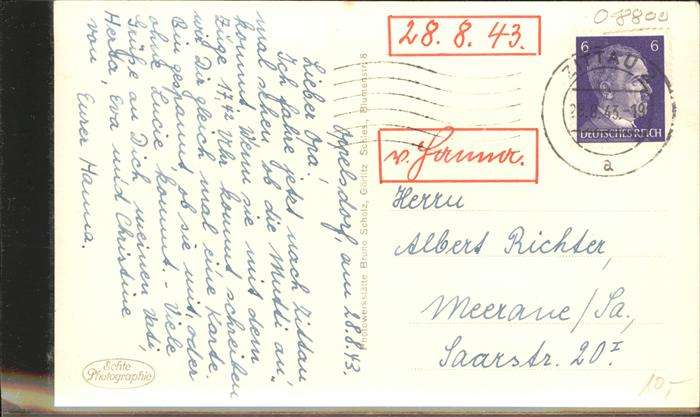 Oppelsdorf, am 28.8.43.
Lieber Opa!
Ich fahre jetzt nach Zittau,
mal sehen, ob die Mutti an-
kommt. Wenn sie mit dem
Zuge 17,42 Uhr kommt, schreiben
wir Dir gleich mal eine Karte.
Bin gespannt, ob sie mit oder
ohne Lucie kommt. - Viele
Grüße an Dich, meinen Vati,
Herta, Eva und Christine
von Eurer Hanna.
Echte
Photographie
Photowerkstätte Bruno Scholz, Görlitz Schles., Blumenstr. 8
28. 8. 43.
v. Hanna.
0-8800
6 6
DEUTSCHES REICH
ZITTAU
28.8.43.-19
a
Herrn
Albert Richter,
Meerane/Sa.,
Saarstr. 20 I
10,-